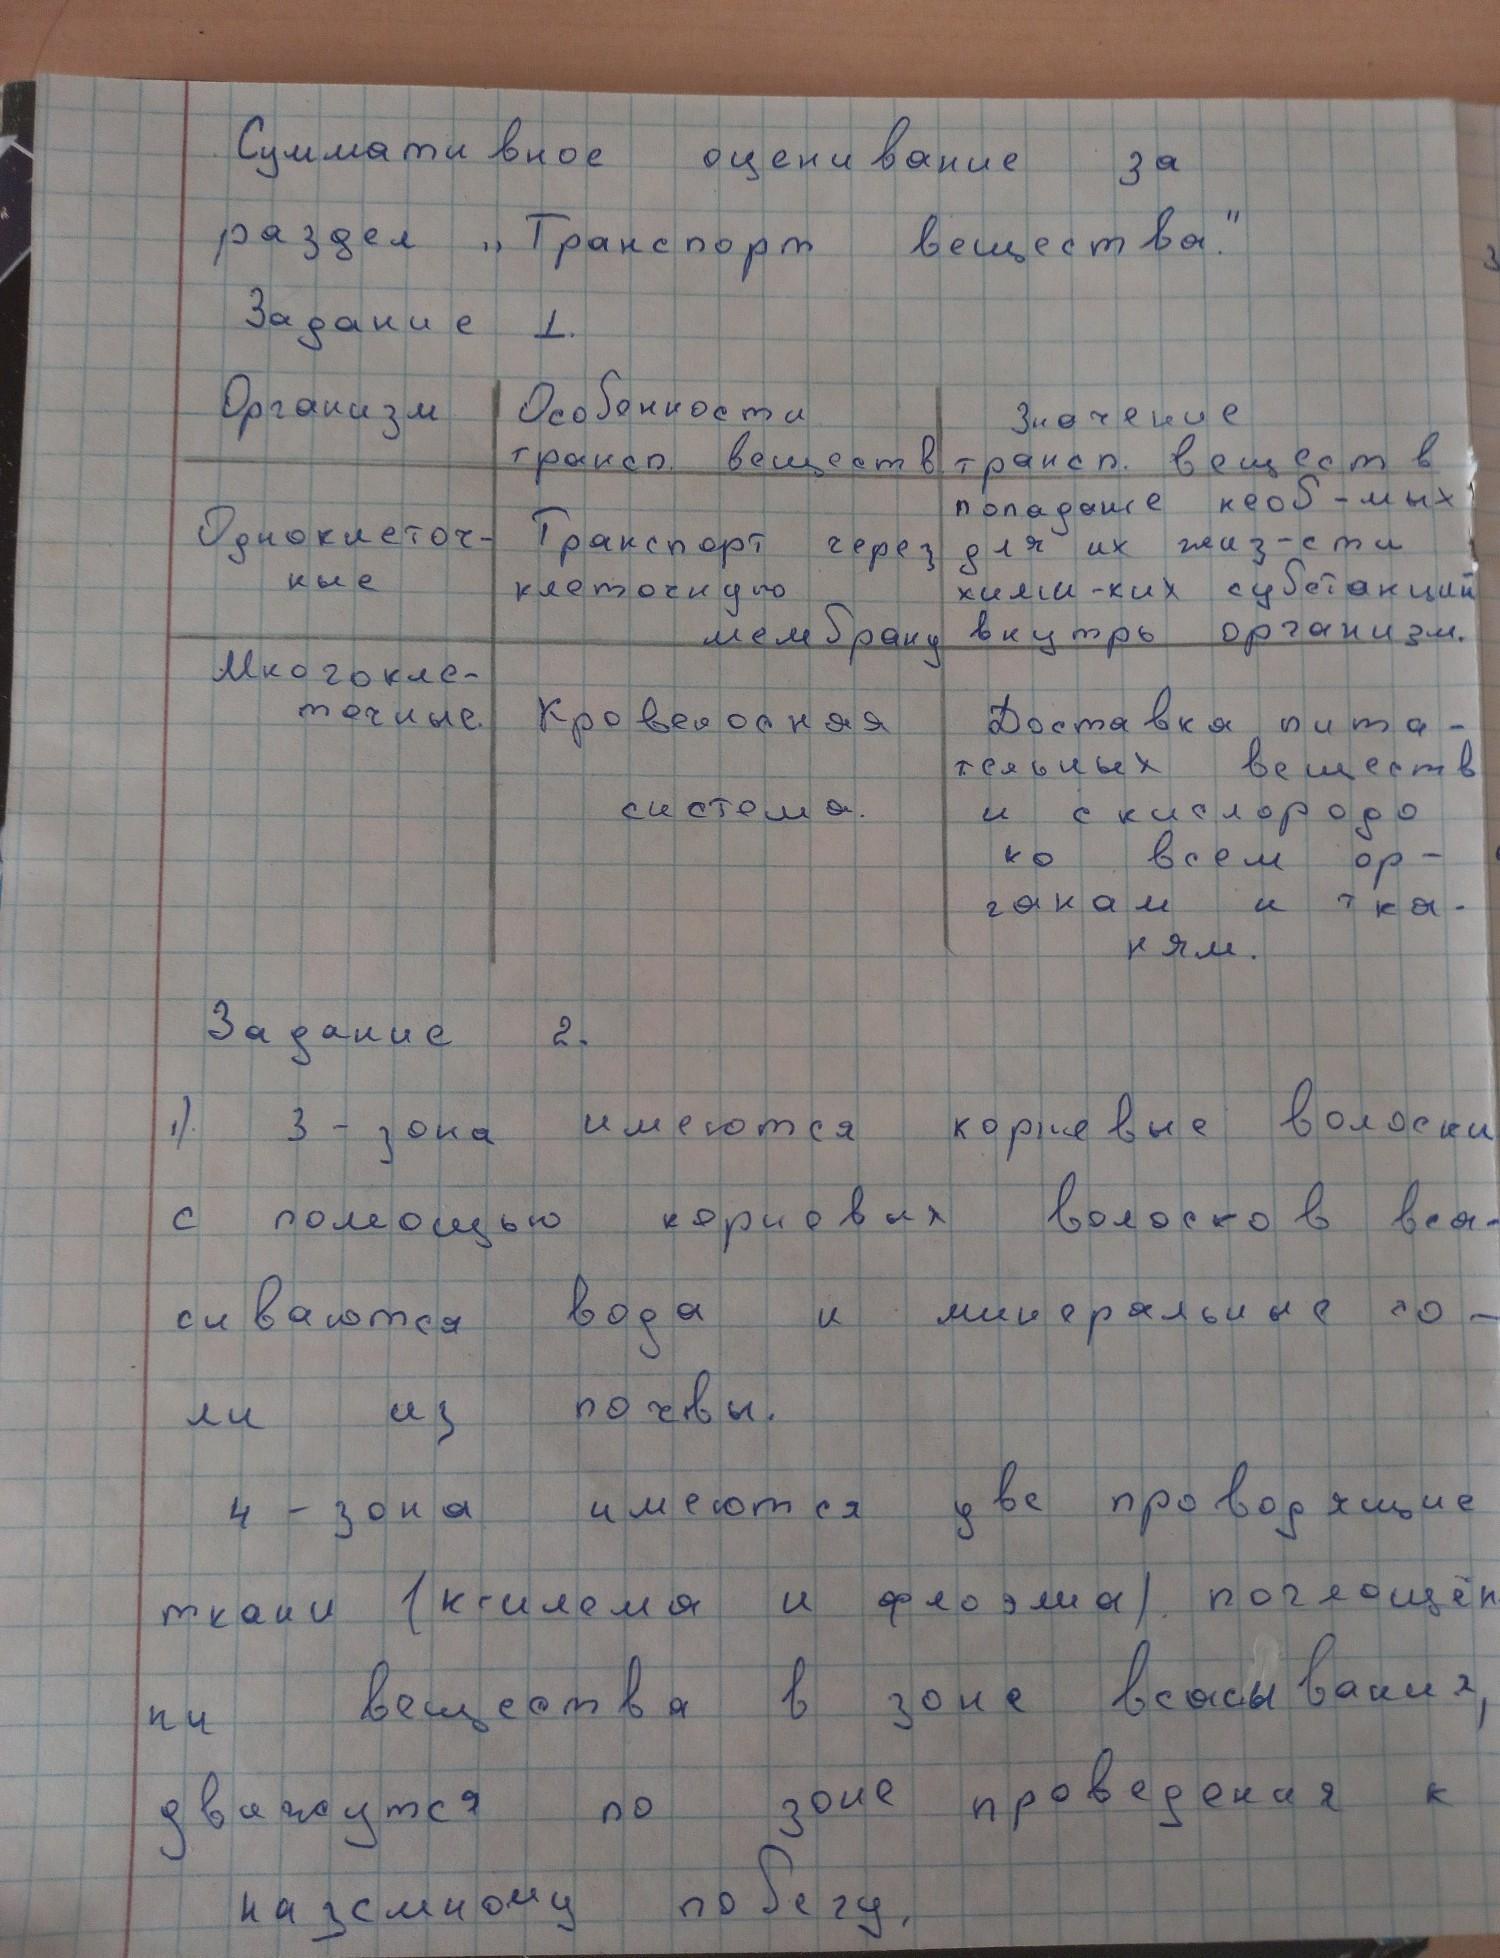 Суммативное оценивание за
раздел „Транспорт вещества."
Задание 1.
Организм Особенности Значение
трансп. веществ трансп. веществ
попадание необ-мых
Одноклеточ- Транспорт через для их жиз-сти
ные клеточную хими-ких субстанций
мембрану внутрь организм.
Многокле-
точные. Кровеносная Доставка пита-
тельных веществ
система. и с кислородо
ко всем ор-
ганам и тка-
ням.
Задание 2.
1). 3-зона имеются корневые волоски
с помощью корневых волосков вса-
сиваются вода и минеральные со-
ли из почвы.
4-зона имеются две проводящие
ткани (ксилема и флоэма). поглощён
ни вещества в зоне всасывания,
движутся по зоне проведения к
наземному побегу.